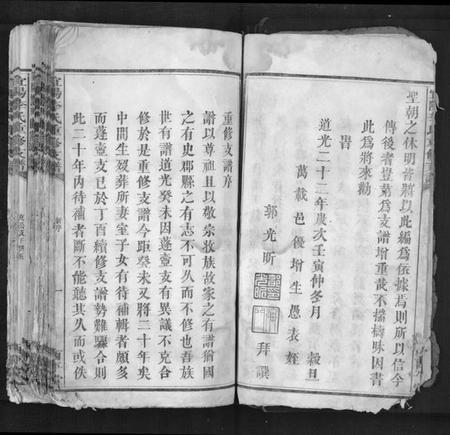 聖朝之休明者將以此編為依據焉則所以信今
傳後者豈第為支譜增重哉不揣檮昧因書
此為將來勸
旹
道光二十二年歲次壬寅仲冬月 穀旦
萬載邑優增生愚表姪
郭光昕 拜譔
重修支譜序
譜以尊祖且以敬宗收族故家之有譜猶國
之有史郡縣之有志不可久而不修也吾族
世有譜道光癸未因蓬壺支有異議不克合
修於是重修支譜今距癸未又將二十年矣
中間生歿葬所妻室子女有待補輯者頗多
而蓬壺支已於丁酉續修支譜勢難驟合則
此二十年內待補者斷不能聽其久而或佚
宜陽李氏重修支譜